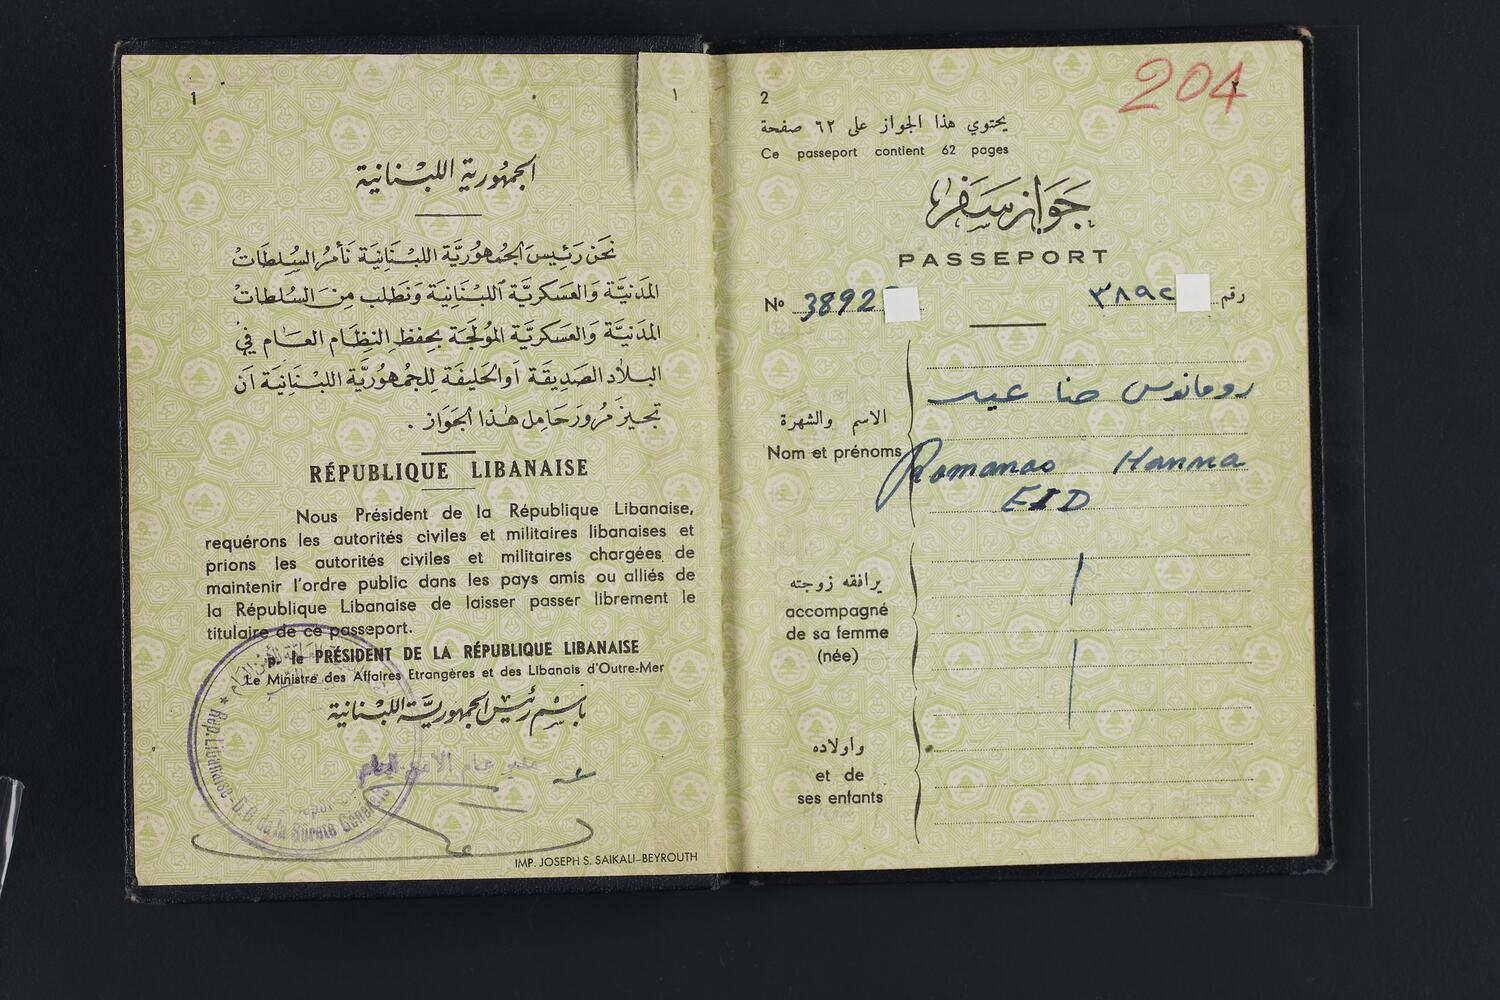 1
١
الجمهورية اللبنانية
نحَن رَئيسَ الجُمهُوريَّة اللبْنَانِيَّة نَأمُر السُلطَاتْ
المَدَنيَّة وَالعَسكريَّة اللبْنَانيَة وَنَطلب مِنَ السُلطات
المَدَنيَّة وَالعَسكريَّة المُولجَة بحِفظِ النِظَام العَام في
البلَاد الصَدِيقَة أو الحَليفَة لِلجُمهُوريَّة اللبْنَانِيَة أن
تجيزَ مرُورَ حَامِل هَذا الجَوَاز .
RÉPUBLIQUE LIBANAISE
Nous Président de la République Libanaise,
requérons les autorités civiles et militaires libanaises et
prions les autorités civiles et militaires chargées de
maintenir l'ordre public dans les pays amis ou alliés de
la République Libanaise de laisser passer librement le
titulaire de ce passeport.
p. le PRÉSIDENT DE LA RÉPUBLIQUE LIBANAISE
Le Ministre des Affaires Etrangères et des Libanais d'Outre-Mer
بِاسْم رئيسْ الجمهوريَّة اللبْنانيَّة
مدير عام الامن العام
Rép. Libanaise - D.G de la Sureté Générale
IMP. JOSEPH S. SAIKALI-BEYROUTH
2
204
يحتوي هذا الجواز على ٦٢ صفحة
Ce passeport contient 62 pages
جَوَاز سَفَر
PASSEPORT
Nº 3892
رقم ٣٨٩٢
الاسم والشهرة
Nom et prénoms
رومانوس حنا عيد
Romanao Hanna
EID
يرافقه زوجته
accompagné
de sa femme
(née)
واولاده
et de
ses enfants